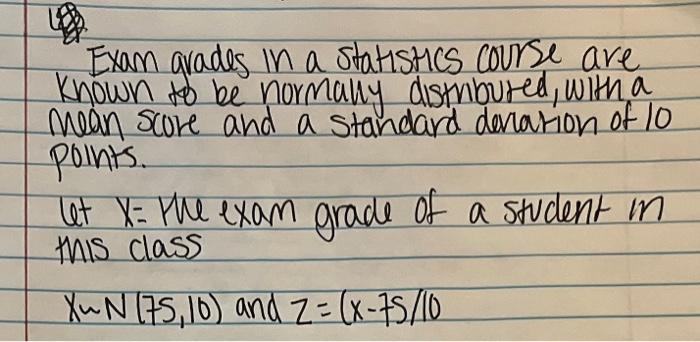 Exam grades in a statistics course are
known to be normally distributed, with a
mean score and a standard deviation of 10
points.
let X= the exam grade of a student in
this class
X~N(75,10) and Z=(x-75/10